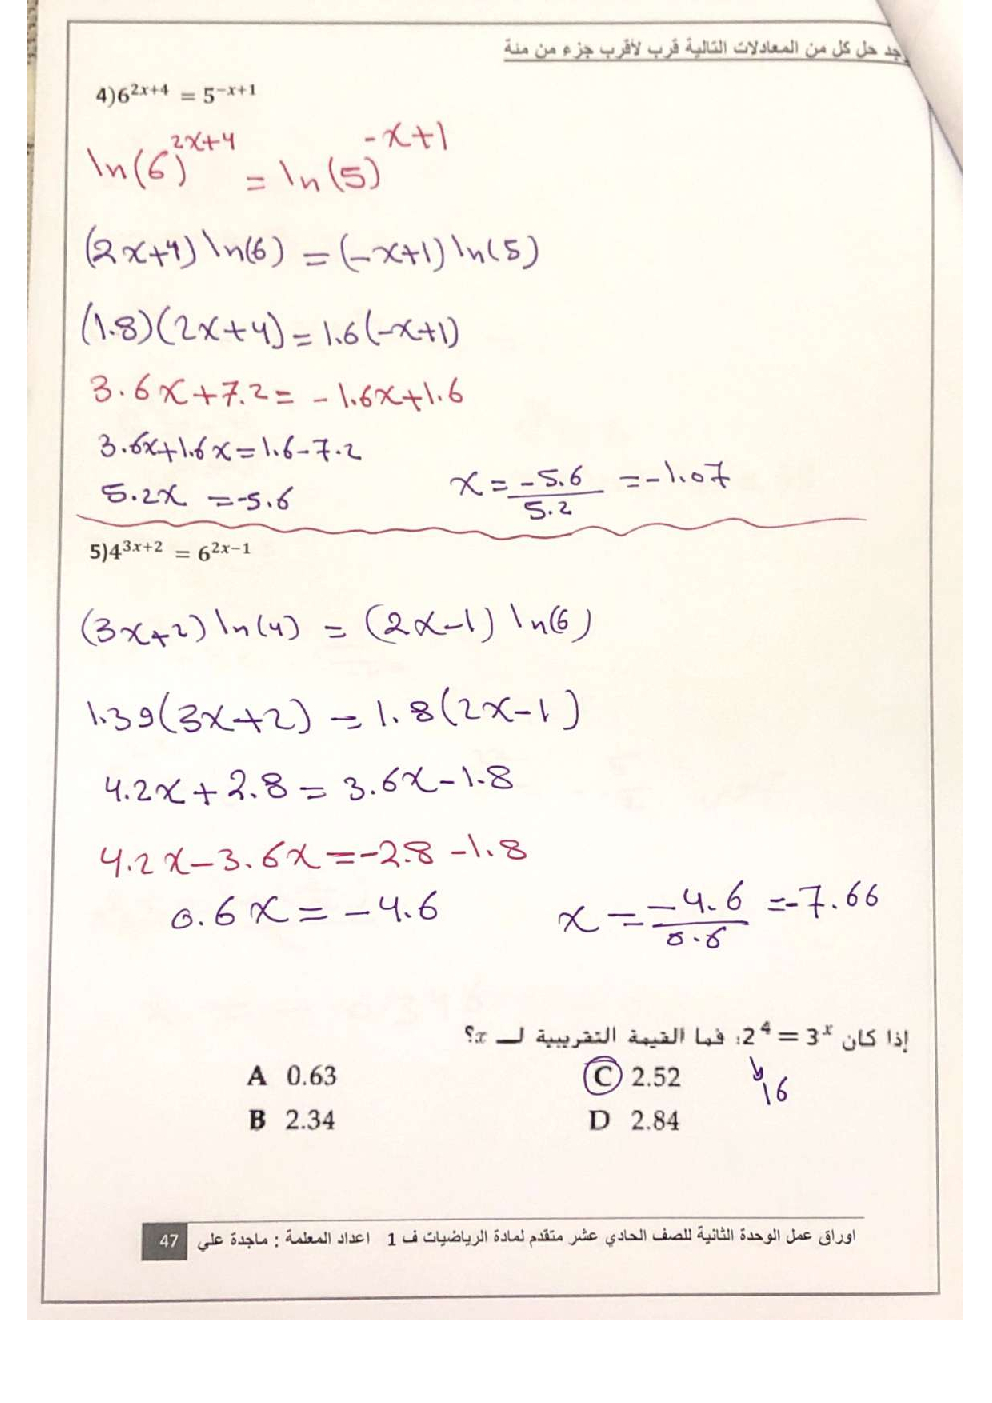 جد حل كل من المعادلات التالية قرب لأقرب جزء من مئة
4)6^{2x+4} = 5^{-x+1}
ln(6)^{2x+4} = ln(5)^{-x+1}
(2x+4) ln(6) = (-x+1) ln(5)
(1.8)(2x+4) = 1.6(-x+1)
3.6x+7.2 = -1.6x+1.6
3.6x+1.6x=1.6-7.2
5.2x = -5.6
x = -5.6/5.2 = -1.07
5)4^{3x+2} = 6^{2x-1}
(3x+2) ln(4) = (2x-1) ln(6)
1.39(3x+2) = 1.8(2x-1)
4.2x + 2.8 = 3.6x-1.8
4.2x-3.6x=-2.8-1.8
0.6x = -4.6
x = -4.6/0.6 = -7.66
إذا كان 2^4 = 3^x؛ فما القيمة التقريبية لــ x؟
16
A 0.63
C 2.52
B 2.34
D 2.84
اوراق عمل الوحدة الثانية للصف الحادي عشر متقدم لمادة الرياضيات ف 1 اعداد المعلمة : ماجدة علي 47